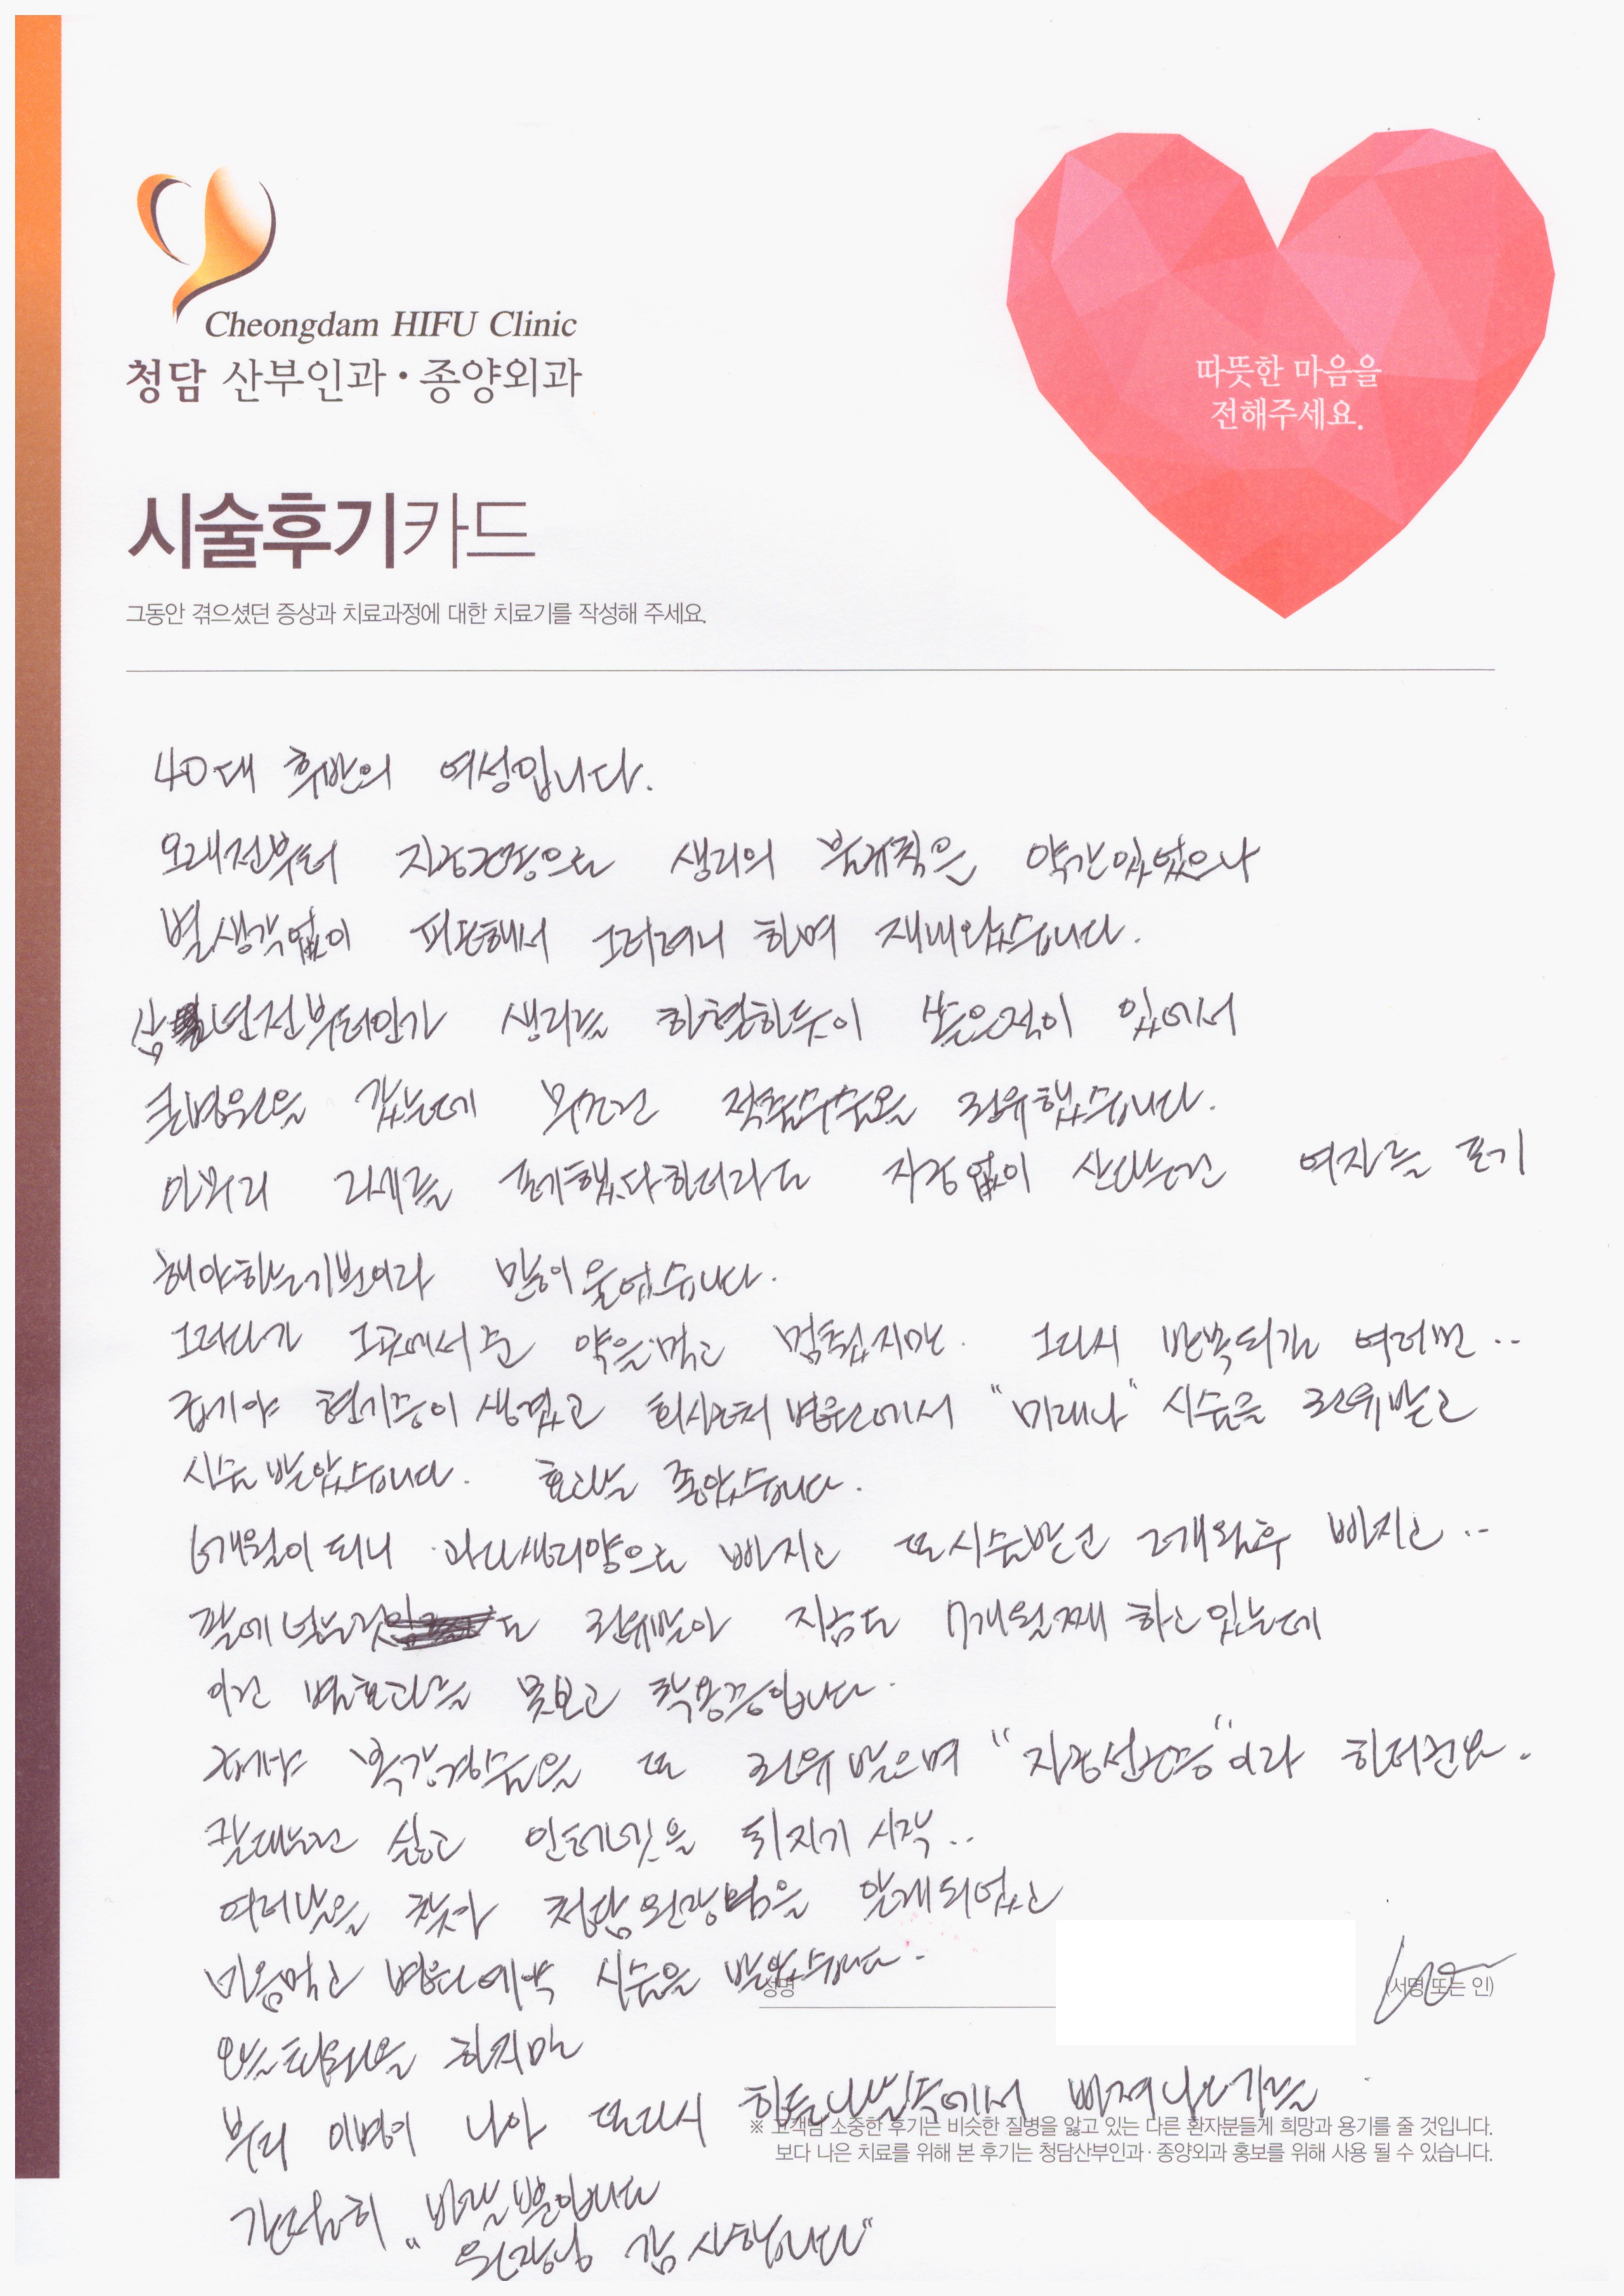 Cheongdam HIFU Clinic
청담 산부인과·종양외과
따뜻한 마음을
전해주세요.
시술후기카드
그동안 겪으셨던 증상과 치료과정에 대한 치료기를 작성해 주세요.
40대 후반의 여성입니다.
오래전부터 자궁근종으로 생리의 불규칙은 약간있었으나
별생각없이 피곤해서 그러려니 하며 지내왔습니다.
년전부터인가 생리를 하혈하듯이 쏟은적이 있어서
큰병원을 갔는데 무조건 적출수술을 권유했습니다.
아무리 폐기했다하더라도 자궁없이 산다는건 여자를 포기
해야하는기분이라 많이울었습니다.
그러다가 그곳에서준 약을먹고 멈췄지만. 그다시 반복되길 여러번..
급기야 현기증이 생겼고 회사근처 병원에서 "미레나" 시술을 권유받고
시술받았습니다. 효과는 좋았습니다.
6개월이 되니 과다생리양으로 빠지고 또시술받고 2개월후 빠지고..
팔에넣는것도 권유받아 지금도 7개월째 하고있는데
이건 별효과를 못보고 착용중입니다.
복강경수술을 또 권유 받으며 "자궁선근증"이라 하더군요.
칼대는건 싫고 인터넷을 뒤지기 시작..
여러날을 찾다 청담원장님을 알게되었고
마음먹고 병원예약 시술을 받았습니다.
성명
(서명 또는 인)
오늘퇴원을 하지만
부디 이병이 나아 또다시 힘든나날속에서 빠져나오기를
※ 고객님 소중한 후기는 비슷한 질병을 앓고 있는 다른 환자분들게 희망과 용기를 줄 것입니다.
보다 나은 치료를 위해 본 후기는 청담산부인과·종양외과 홍보를 위해 사용 될 수 있습니다.
간절히 바랄뿐입니다
"원장님 감사합니다"